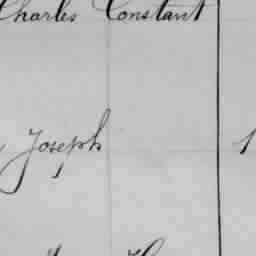 Charles Constant
Joseph 1